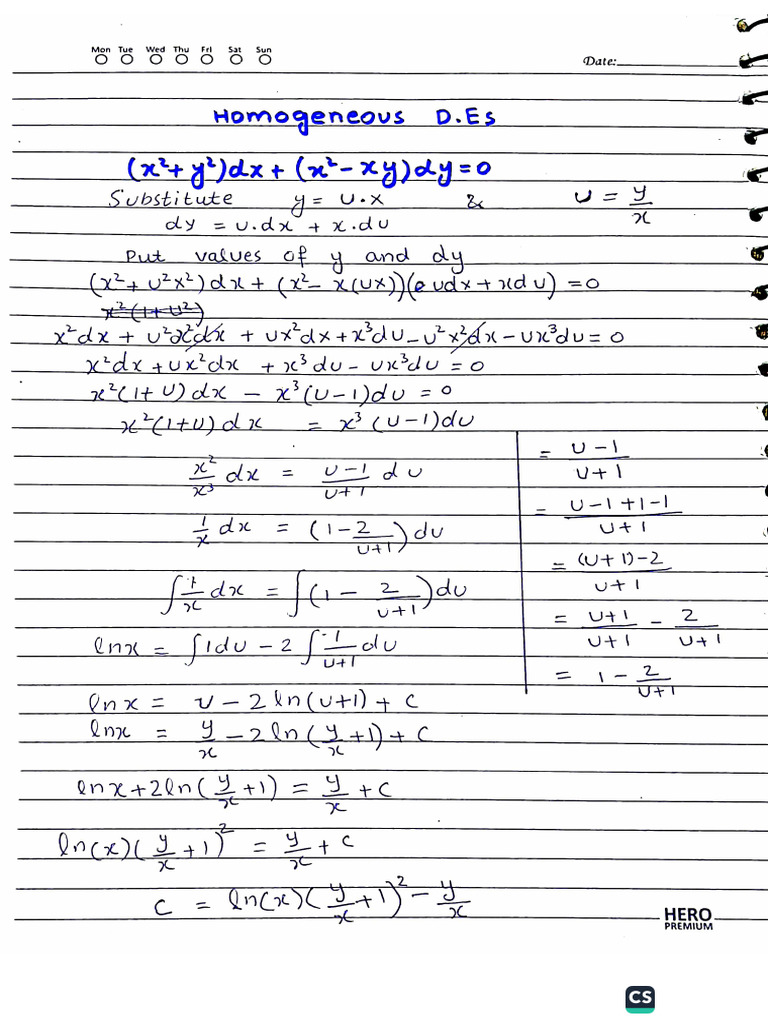 Mon Tue Wed Thu Fri Sat Sun
Date:
Homogeneous D.Es
(x²+ y²)dx + (x² - xy)dy = 0
Substitute y = u·x & u = y/x
dy = u.dx + x.du
Put values of y and dy
(x² + u²x²)dx + (x² - x(ux))(udx + xdu) = 0
x²(1+u²)
x²dx + u²x²dx + ux²dx + x³du - u²x²dx - ux³du = 0
x²dx + ux²dx + x³du - ux³du = 0
x²(1+u)dx - x³(u-1)du = 0
x²(1+u)dx = x³(u-1)du
x²/x³ dx = u-1/u+1 du
1/x dx = (1 - 2/u+1)du
∫1/x dx = ∫(1 - 2/u+1)du
lnx = ∫1du - 2∫1/u+1 du
lnx = u - 2ln(u+1) + c
lnx = y/x - 2ln(y/x +1) + c
lnx + 2ln(y/x +1) = y/x + c
ln(x)(y/x + 1)² = y/x + c
c = ln(x)(y/x +1)² - y/x
= u-1/u+1
= u-1+1-1/u+1
= (u+1)-2/u+1
= u+1/u+1 - 2/u+1
= 1 - 2/u+1
HERO
PREMIUM
CS